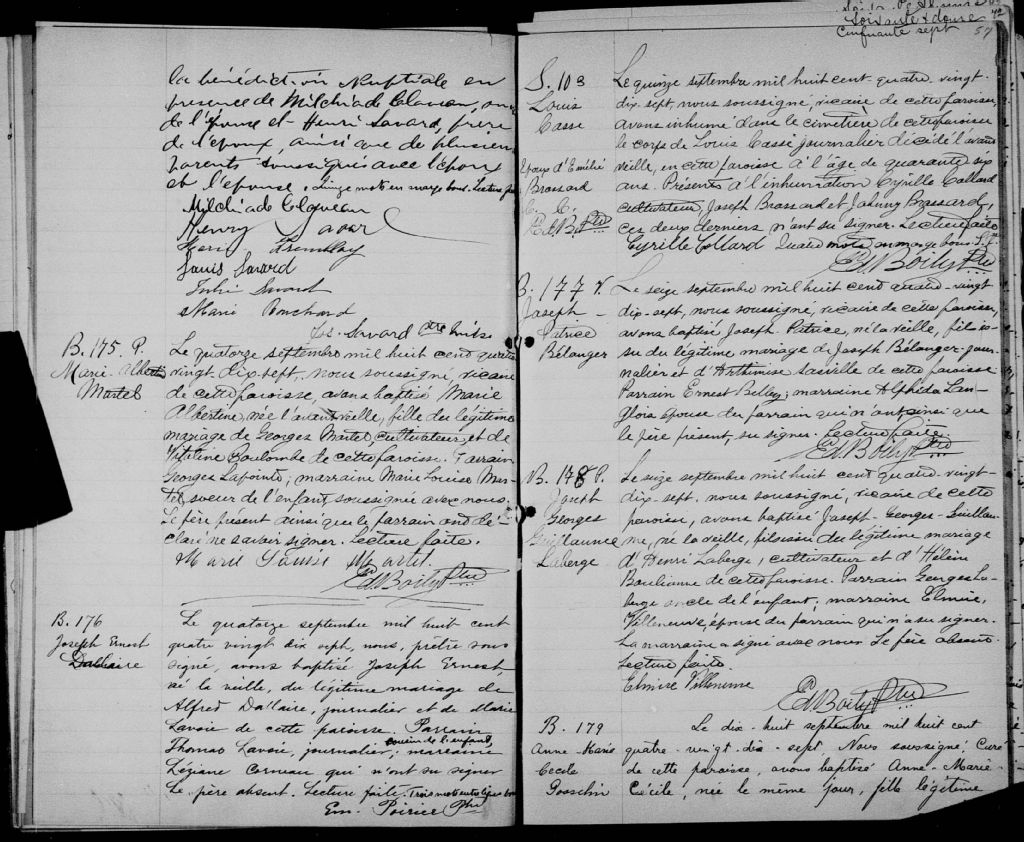 la bénédiction Nuptiale en
presence de Milchiade
de l'épouse et Henri Savard, frère
de l'époux, ainsi que de plusieurs
parents soussignés avec l'époux
et l'épouse. mots en marge bons. Lecture faite
Milchiade
Henry Savard
Tremblay
Louis Savard
Savard
Marie Bouchard
Savard Ptre
B. 175. P.
Marie-Albertine
Martel
Le quatorze septembre mil huit cent quatre
vingt dix-sept, nous soussigné, vicaire
de cette paroisse, avons baptisé Marie
Albertine, née l'avant veille, fille du légitime
mariage de Georges Martel, cultivateur, et de
Boulombe de cette paroisse. Parrain
Georges Lapointe; marraine Marie Louise Mar-
tel, soeur de l'enfant, soussignée avec nous.
Le père présent ainsi que le parrain ont dé-
claré ne savoir signer. Lecture faite.
Marie Louise Martel
Ed. Boily Ptre
B. 176
Joseph Ernest
Dallaire
Le quatorze septembre mil huit cent
quatre vingt dix sept, nous, prêtre sous
signé, avons baptisé Joseph Ernest,
né la veille, du légitime mariage de
Alfred Dallaire, journalier et de Marie
Lavoie de cette paroisse. Parrain
Thomas Lavoie, journalier, cousin de l'enfant, marraine
Léziane qui n'ont su signer
Le père absent. Lecture faite. Trois mots entre lignes bons
Em. Poirier Ptre
Soixante & douze 72
Cinquante sept 57
S. 103
Louis
Casse
Epoux d'Emélie
Brassard
E. B. Ptre
Le quinze septembre mil huit cent quatre vingt-
dix-sept, nous soussigné, vicaire de cette paroisse,
avons inhumé dans le cimetière de cette paroisse
le corps de Louis Casse journalier décédé l'avant
veille, en cette paroisse à l'âge de quarante six
ans. Présents à l'inhumation Cyrille Collard
cultivateur, Joseph Brassard et Johnny Brassard,
ces deux derniers n'ont su signer. Lecture faite
Cyrille Collard Quatre mots en marge bons.
Ed Boily Ptre
B. 177
Joseph
Patrice
Bélanger
Le seize septembre mil huit cent quatre-vingt
dix-sept, nous soussigné, vicaire de cette paroisse,
avons baptisé Joseph Patrice, né la veille, fils is-
su du légitime mariage de Joseph Bélanger jour-
nalier et d'Arthémise Lasville de cette paroisse
Parrain Ernest Billy; marraine Alphéda Lan-
glois épouse du parrain qui n'ont ainsi que
le père présent, su signer. Lecture faite.
Ed. Boily Ptre
B. 178 P.
Joseph
Georges
Guillaume
Laberge
Le seize septembre mil huit cent quatre vingt-
dix-sept, nous soussigné, vicaire de cette
paroisse, avons baptisé Joseph-Georges-Guillau-
me, né la veille, fils issu du légitime mariage
d'Henri Laberge, cultivateur et d'Hélène
Boulianne de cette paroisse. Parrain Georges La-
berge oncle de l'enfant; marraine Elmire
Villeneuve, épouse du parrain qui n'a su signer.
La marraine a signé avec nous. Le père absent.
Lecture faite.
Elmire Villeneuve
Ed Boily Ptre
B. 179
Anne-Marie
Cecile
Gosselin
Le dix-huit septembre mil huit cent
quatre-vingt-dix-sept, Nous soussigné, Curé
de cette paroisse, avons baptisé Anne-Marie-
Cécile, née le même jour, fille légitime